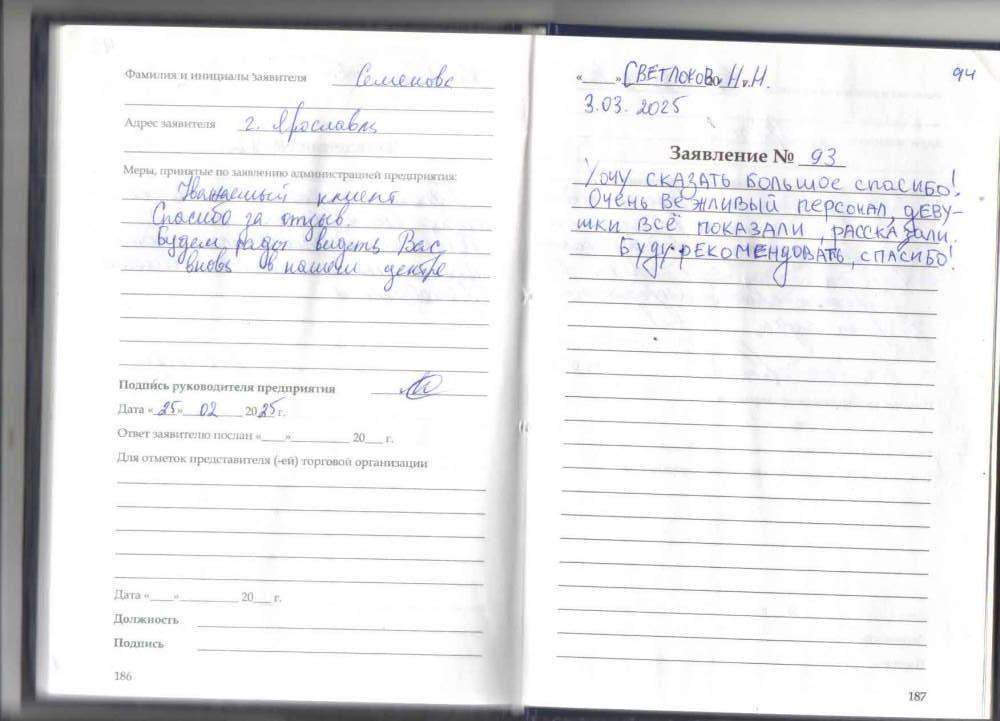 Фамилия и инициалы заявителя Семенова
Адрес заявителя г. Ярославль
Меры, принятые по заявлению администрацией предприятия:
Уважаемый клиент
Спасибо за отзыв.
Будем рады видеть Вас
вновь в нашем центре
Подпись руководителя предприятия
Дата «25» 02 2025 г.
Ответ заявителю послан «___»__________ 20___ г.
Для отметок представителя (-ей) торговой организации
Дата «___»__________ 20___ г.
Должность
Подпись
186
94
«___» СВЕТЛОКОВА Н.Н.
3.03. 2025
Заявление № 93
Хочу сказать большое спасибо!
Очень вежливый персонал, деву-
шки всё показали, рассказали.
Буду рекомендовать, спасибо!
187